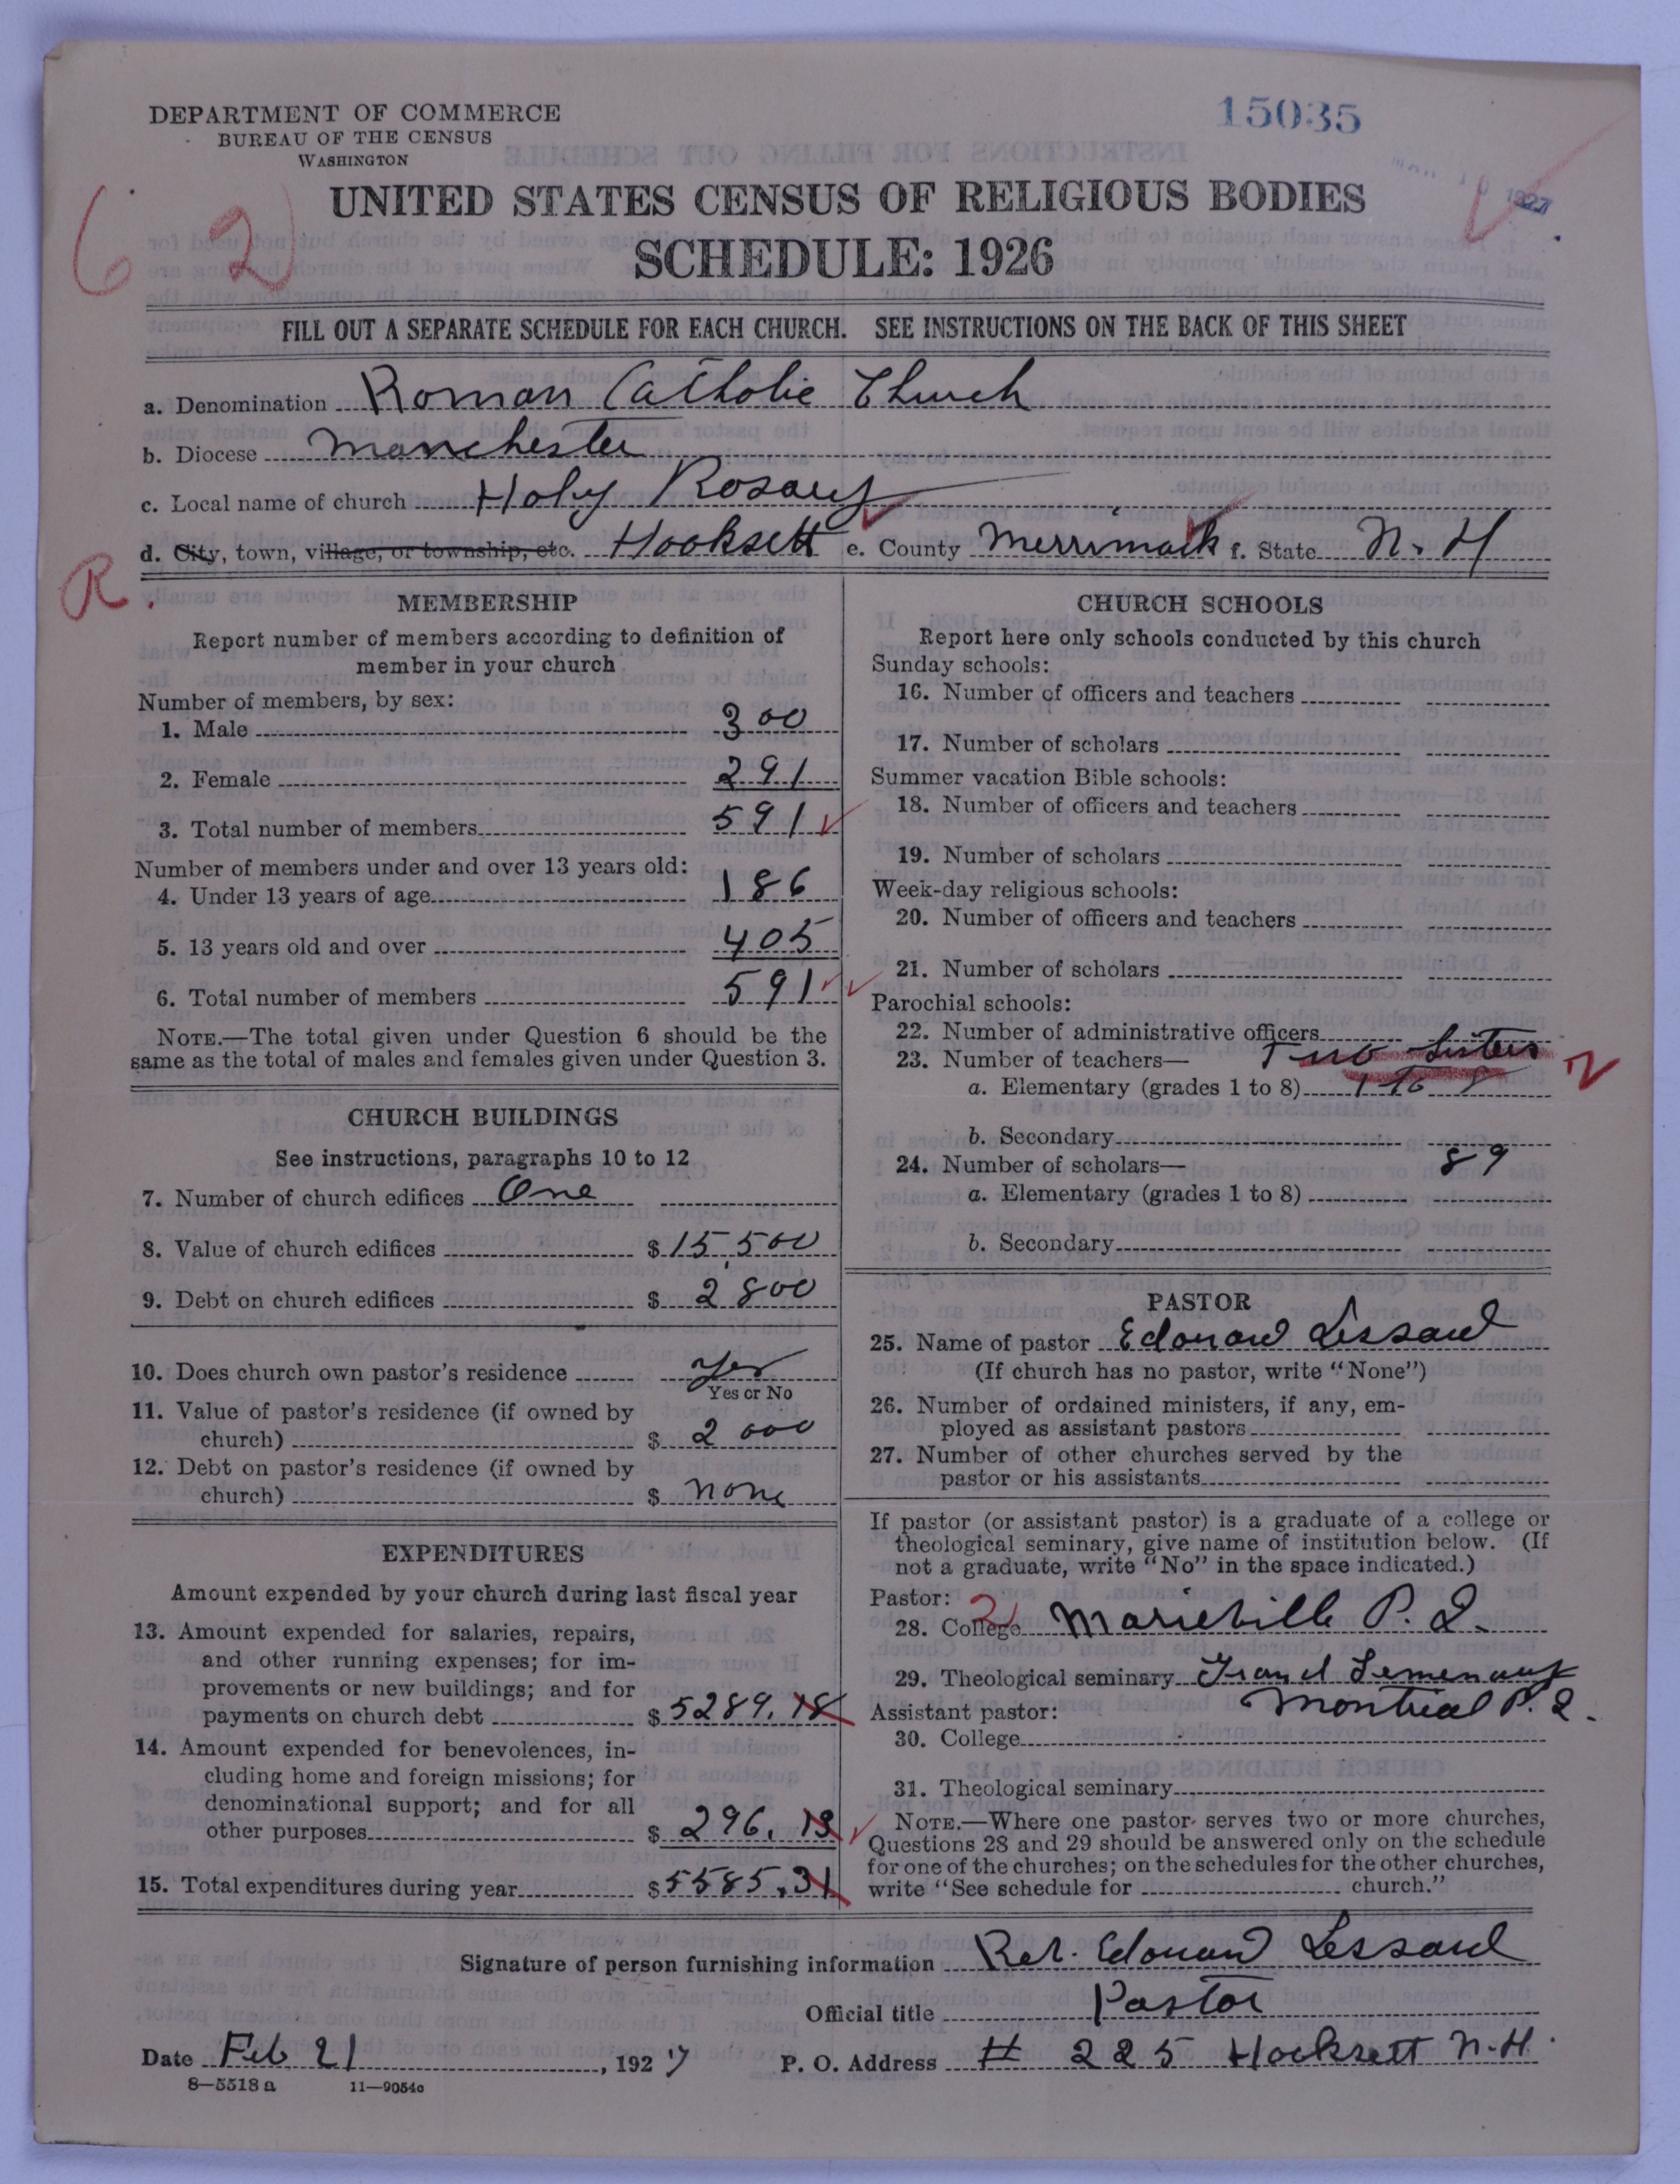 DEPARTMENT OF COMMERCE
BUREAU OF THE CENSUS
WASHINGTON
15035
1927
UNITED STATES CENSUS OF RELIGIOUS BODIES
SCHEDULE: 1926
FILL OUT A SEPARATE SCHEDULE FOR EACH CHURCH. SEE INSTRUCTIONS ON THE BACK OF THIS SHEET
a. Denomination Roman Catholic Church
b. Diocese Manchester
c. Local name of church Holy Rosary
d. City, town, village, or township, etc. Hooksett e. County Merrimack f. State N. H
R.
MEMBERSHIP
Report number of members according to definition of
member in your church
Number of members, by sex:
1. Male 300
2. Female 291
3. Total number of members 591
Number of members under and over 13 years old:
4. Under 13 years of age 186
5. 13 years old and over 405
6. Total number of members 591
NOTE.—The total given under Question 6 should be the
same as the total of males and females given under Question 3.
CHURCH BUILDINGS
See instructions, paragraphs 10 to 12
7. Number of church edifices One
8. Value of church edifices $ 15,500
9. Debt on church edifices $ 2800
10. Does church own pastor's residence Yes
Yes or No
11. Value of pastor's residence (if owned by
church) $ 2000
12. Debt on pastor's residence (if owned by
church) $ none
EXPENDITURES
Amount expended by your church during last fiscal year
13. Amount expended for salaries, repairs,
and other running expenses; for im-
provements or new buildings; and for
payments on church debt $ 5289.18
14. Amount expended for benevolences, in-
cluding home and foreign missions; for
denominational support; and for all
other purposes $ 296.13
15. Total expenditures during year $ 5585.31
CHURCH SCHOOLS
Report here only schools conducted by this church
Sunday schools:
16. Number of officers and teachers
17. Number of scholars
Summer vacation Bible schools:
18. Number of officers and teachers
19. Number of scholars
Week-day religious schools:
20. Number of officers and teachers
21. Number of scholars
Parochial schools:
22. Number of administrative officers
23. Number of teachers— Two Sisters 2
a. Elementary (grades 1 to 8) 1 to 8
b. Secondary
24. Number of scholars— 89
a. Elementary (grades 1 to 8)
b. Secondary
PASTOR
25. Name of pastor Edouard Lessard
(If church has no pastor, write "None")
26. Number of ordained ministers, if any, em-
ployed as assistant pastors
27. Number of other churches served by the
pastor or his assistants
If pastor (or assistant pastor) is a graduate of a college or
theological seminary, give name of institution below. (If
not a graduate, write "No" in the space indicated.)
Pastor:
28. College Marieville P. Q.
29. Theological seminary Grand Semenary
Montreal P. Q.
Assistant pastor:
30. College
31. Theological seminary
NOTE.—Where one pastor serves two or more churches,
Questions 28 and 29 should be answered only on the schedule
for one of the churches; on the schedules for the other churches,
write "See schedule for church."
Signature of person furnishing information Rev. Edouard Lessard
Official title Pastor
Date Feb 21, 1927 P. O. Address # 225 Hooksett N.H.
8—5518 a 11—9054c